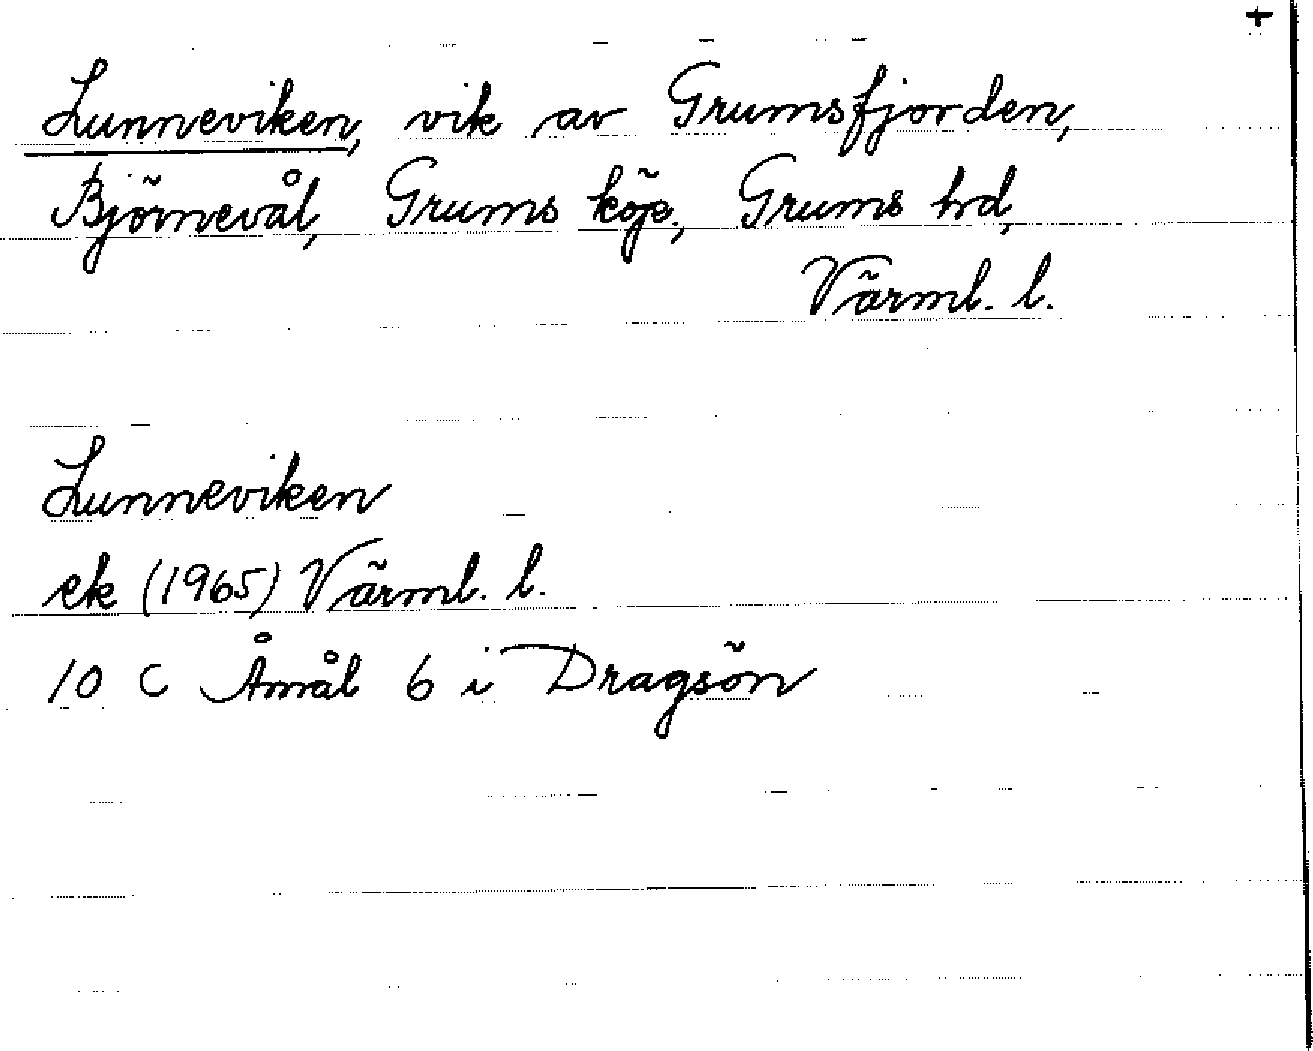 +
Lunneviken, vik av Grumsfjorden,
Björnevål, Grums köp., Grums hd,
Värml. l.
Lunneviken
ek (1965) Värml. l.
10 C Åmål 6 i Dragsön